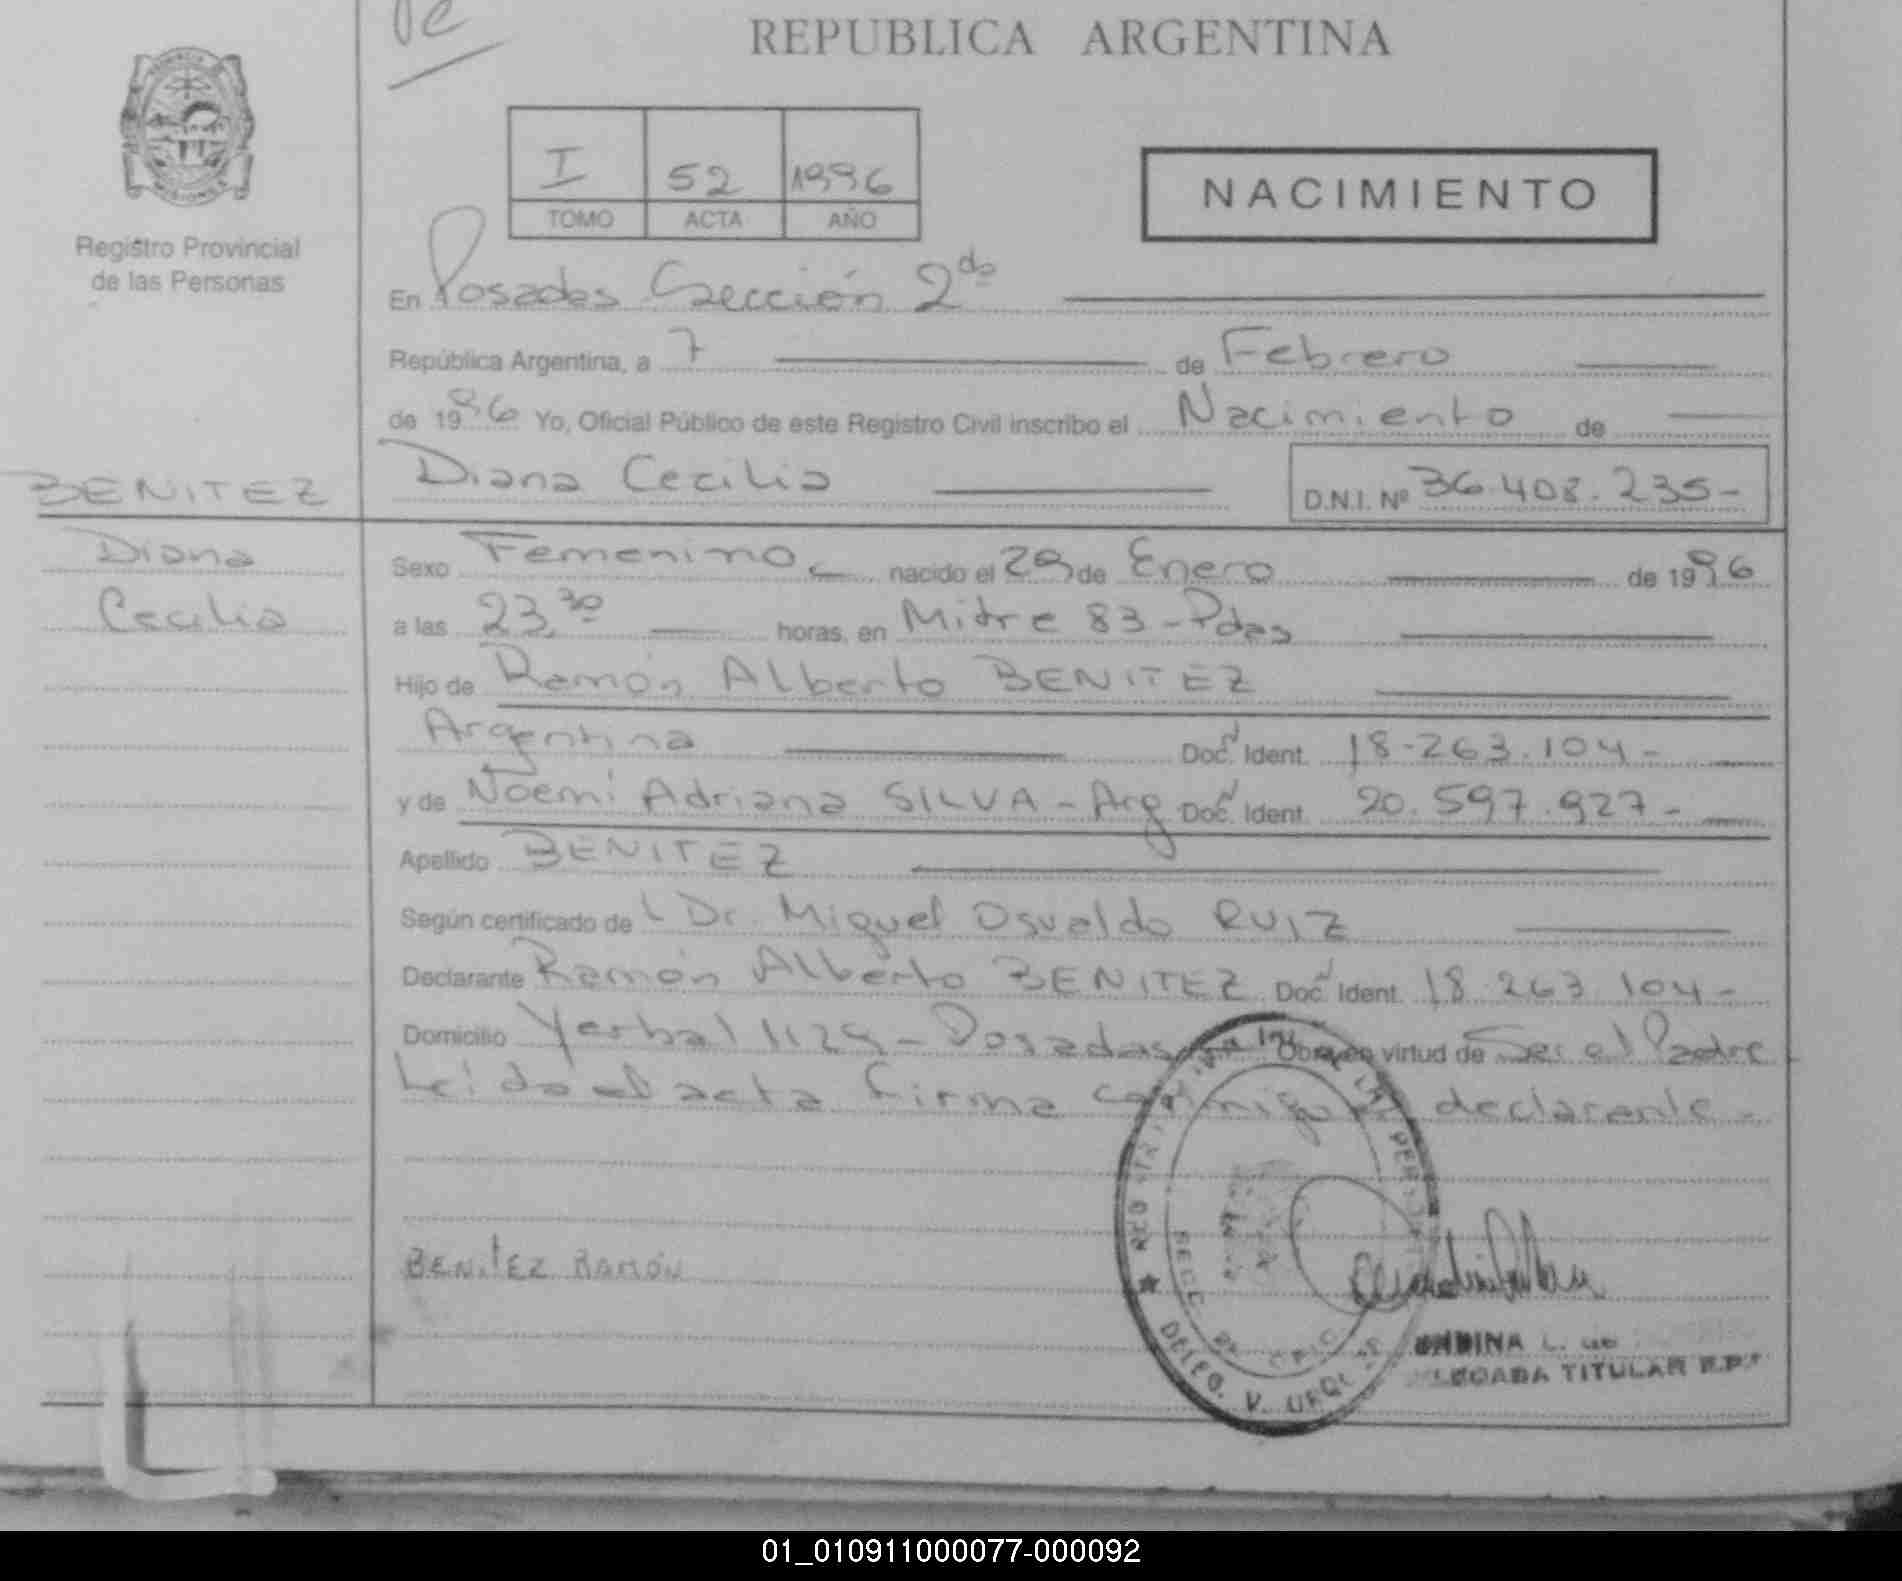 de
REPUBLICA ARGENTINA
I 52 1996
TOMO ACTA AÑO
NACIMIENTO
Registro Provincial
de las Personas
En Posadas Sección 2da
República Argentina, a 7 de Febrero
de 1996 Yo, Oficial Público de este Registro Civil inscribo el Nacimiento de
BENITEZ
Diana Cecilia
D.N.I. Nº 36.408.235-
Diana
Cecilia
Sexo Femenino nacido el 29 de Enero de 1996
a las 23,30 horas, en Mitre 83 - Pdas
Hijo de Ramón Alberto BENITEZ
Argentina Doc. Ident. 18.263.104-
y de Noemi Adriana SILVA - Arg Doc. Ident. 20.597.927-
Apellido BENITEZ
Según certificado de Dr. Miguel Osvaldo RUIZ
Declarante Ramón Alberto BENITEZ Doc. Ident. 18.263.104-
Domicilio Yerbal 1129 - Posadas Obra en virtud de Ser el Padre
Leída el acta firma conmigo el declarante-
BENITEZ RAMÓN
DELEG. V. URQUIZA
L. de
TITULAR R.P.
01_010911000077-000092